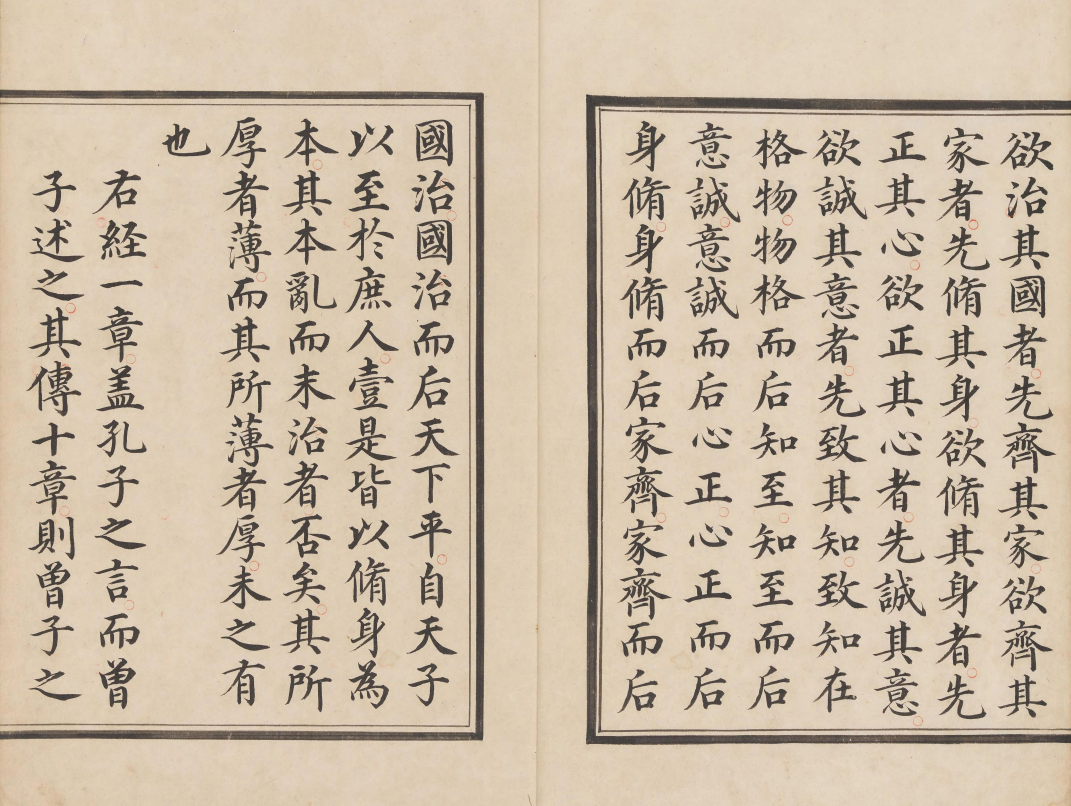 欲治其國者先齊其家欲齊其
家者先脩其身欲脩其身者先
正其心欲正其心者先誠其意
欲誠其意者先致其知致知在
格物物格而后知至知至而后
意誠意誠而后心正心正而后
身脩身脩而后家齊家齊而后
國治國治而后天下平自天子
以至於庶人壹是皆以脩身為
本其本亂而末治者否矣其所
厚者薄而其所薄者厚未之有
也
右経一章盖孔子之言而曽
子述之其傳十章則曽子之